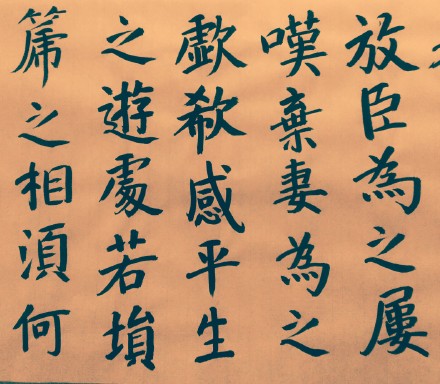 放臣為之屢
嘆棄妻為之
歔欷感平生
之遊處若塤
篪之相湏何